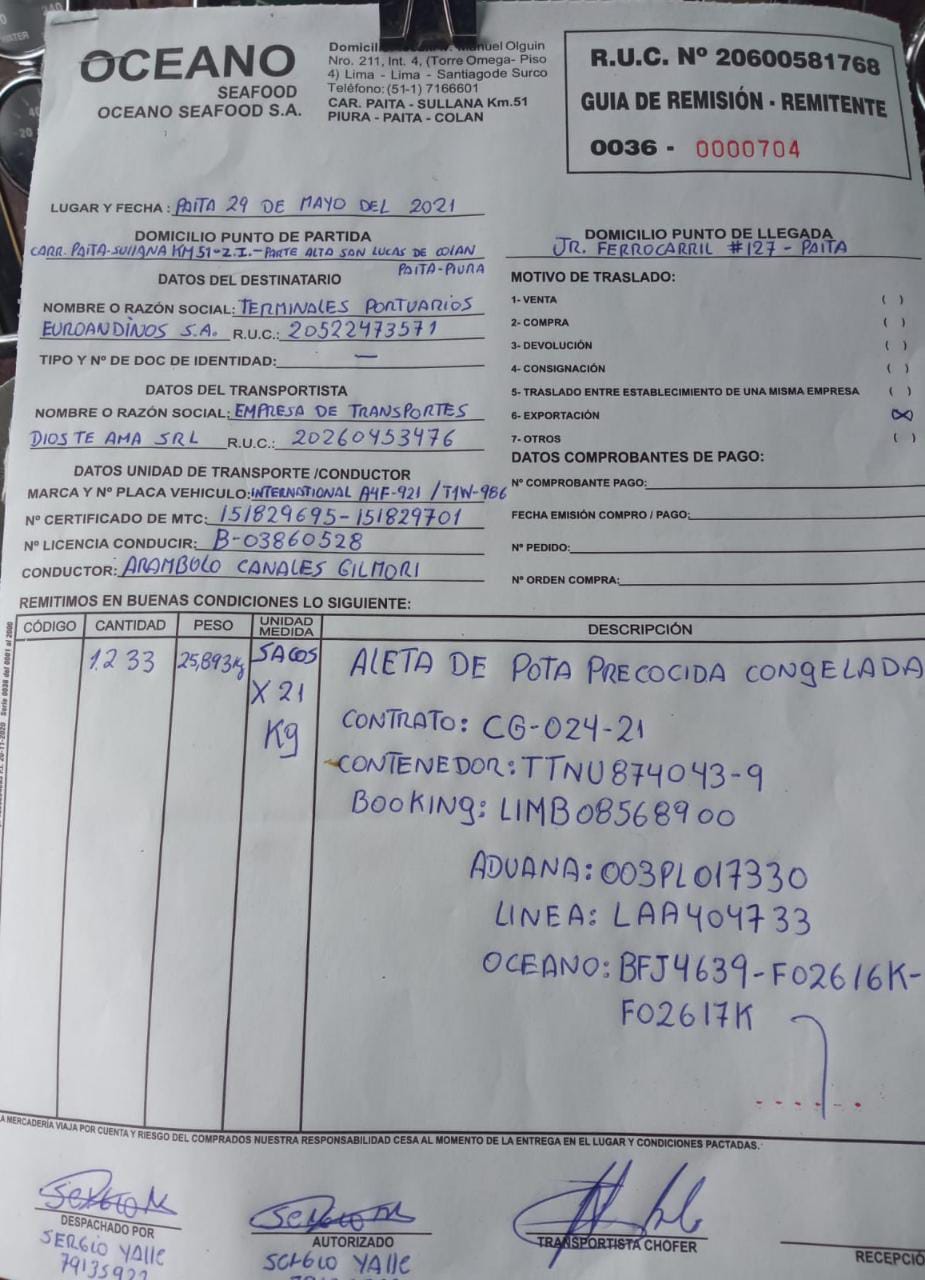 OCEANO
SEAFOOD
OCEANO SEAFOOD S.A.
Nro. 211, Int. 4, (Torre Omega- Piso
4) Lima - Lima - Santiagode Surco
Teléfono: (51-1) 7166601
CAR. PAITA - SULLANA Km.51
PIURA - PAITA - COLAN
R.U.C. Nº 20600581768
GUIA DE REMISIÓN - REMITENTE
0036 - 0000704
LUGAR Y FECHA : PAITA 29 DE MAYO DEL 2021
DOMICILIO PUNTO DE PARTIDA
CARR. PAITA-SULLANA KM 51-Z.I.-PARTE ALTA SAN LUCAS DE COLAN
PAITA-PIURA
DOMICILIO PUNTO DE LLEGADA
JR. FERROCARRIL #127 - PAITA
DATOS DEL DESTINATARIO
NOMBRE O RAZÓN SOCIAL: TERMINALES PORTUARIOS
EUROANDINOS S.A. R.U.C.: 20522473571
TIPO Y Nº DE DOC DE IDENTIDAD: —
DATOS DEL TRANSPORTISTA
NOMBRE O RAZÓN SOCIAL: EMPRESA DE TRANSPORTES
DIOS TE AMA SRL R.U.C.: 20260453476
DATOS UNIDAD DE TRANSPORTE /CONDUCTOR
MARCA Y Nº PLACA VEHICULO: INTERNATIONAL A4F-921 / T1W-986
Nº CERTIFICADO DE MTC: 151829695-151829701
Nº LICENCIA CONDUCIR: B-03860528
CONDUCTOR: ARAMBULO CANALES GILMORI
MOTIVO DE TRASLADO:
1- VENTA ( )
2- COMPRA ( )
3- DEVOLUCIÓN ( )
4- CONSIGNACIÓN ( )
5- TRASLADO ENTRE ESTABLECIMIENTO DE UNA MISMA EMPRESA ( )
6- EXPORTACIÓN (X)
7- OTROS ( )
DATOS COMPROBANTES DE PAGO:
Nº COMPROBANTE PAGO:
FECHA EMISIÓN COMPRO / PAGO:
Nº PEDIDO:
Nº ORDEN COMPRA:
REMITIMOS EN BUENAS CONDICIONES LO SIGUIENTE:
CÓDIGO CANTIDAD PESO UNIDAD MEDIDA DESCRIPCIÓN
1.233 25,893Kg SACOS X 21 Kg ALETA DE POTA PRECOCIDA CONGELADA
CONTRATO: CG-024-21
CONTENEDOR: TTNU874043-9
BOOKING: LIMB08568900
ADUANA: 003PL017330
LINEA: LAA404733
OCEANO: BFJ4639-F02616K-
F02617K
LA MERCADERÍA VIAJA POR CUENTA Y RIESGO DEL COMPRADOS NUESTRA RESPONSABILIDAD CESA AL MOMENTO DE LA ENTREGA EN EL LUGAR Y CONDICIONES PACTADAS.
DESPACHADO POR
SERGIO YALLE
79135922
AUTORIZADO
SERGIO YALLE
TRANSPORTISTA CHOFER
RECEPCIÓ